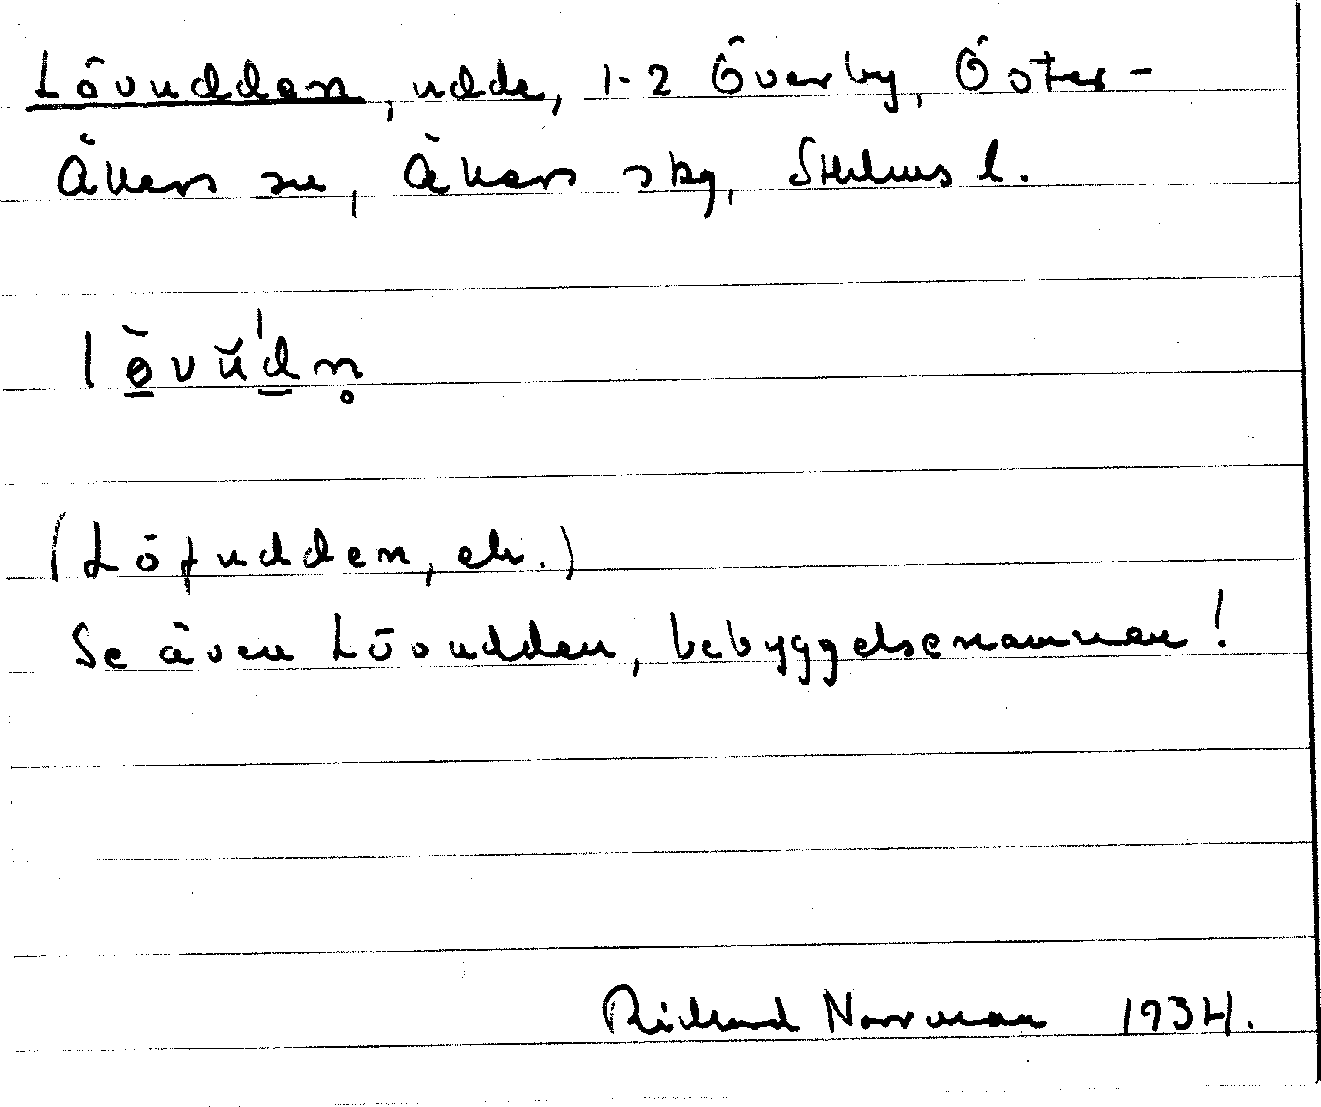 Lövudden, udde, 1-2 Överby, Öster-
Åkers sn, Åkers skg, Sthlms l.
lövŭ'dn̥
(Löfudden, ek.)
Se även Lövudden, bebyggelsenamnen!
Richard Norrman 1934.